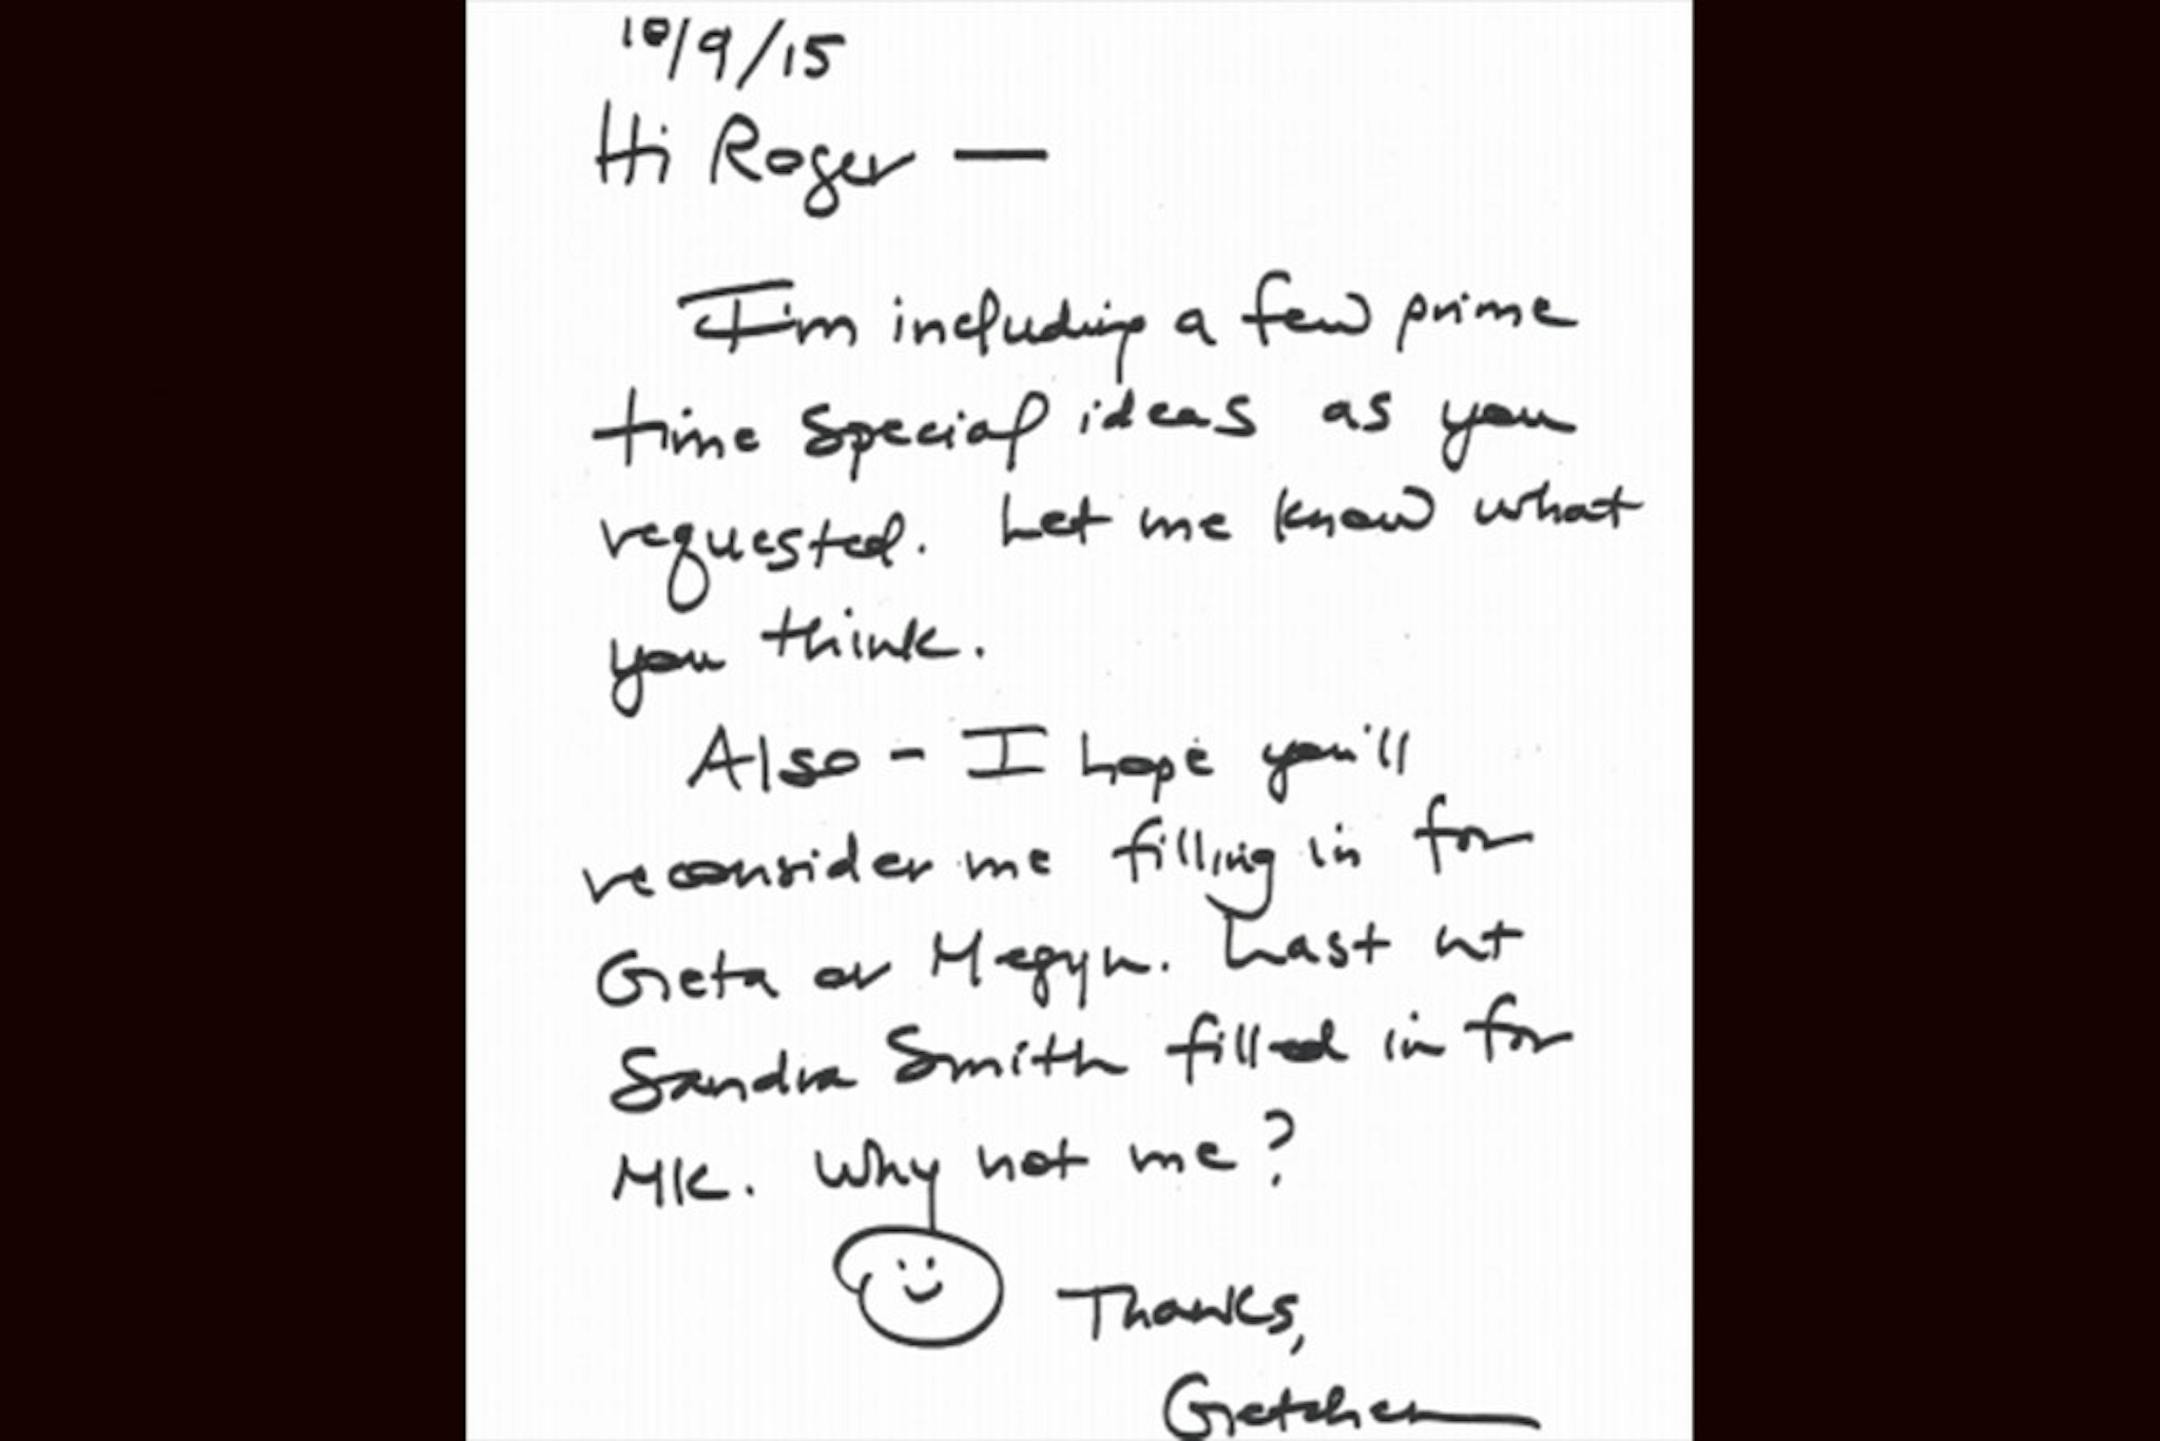 10/9/15
Hi Roger —
I'm including a few prime
time special ideas as you
requested. Let me know what
you think.
Also - I hope you'll
reconsider me filling in for
Greta or Megyn. Last nt
Sandra Smith filled in for
MK. Why not me?
Thanks,
Gretchen